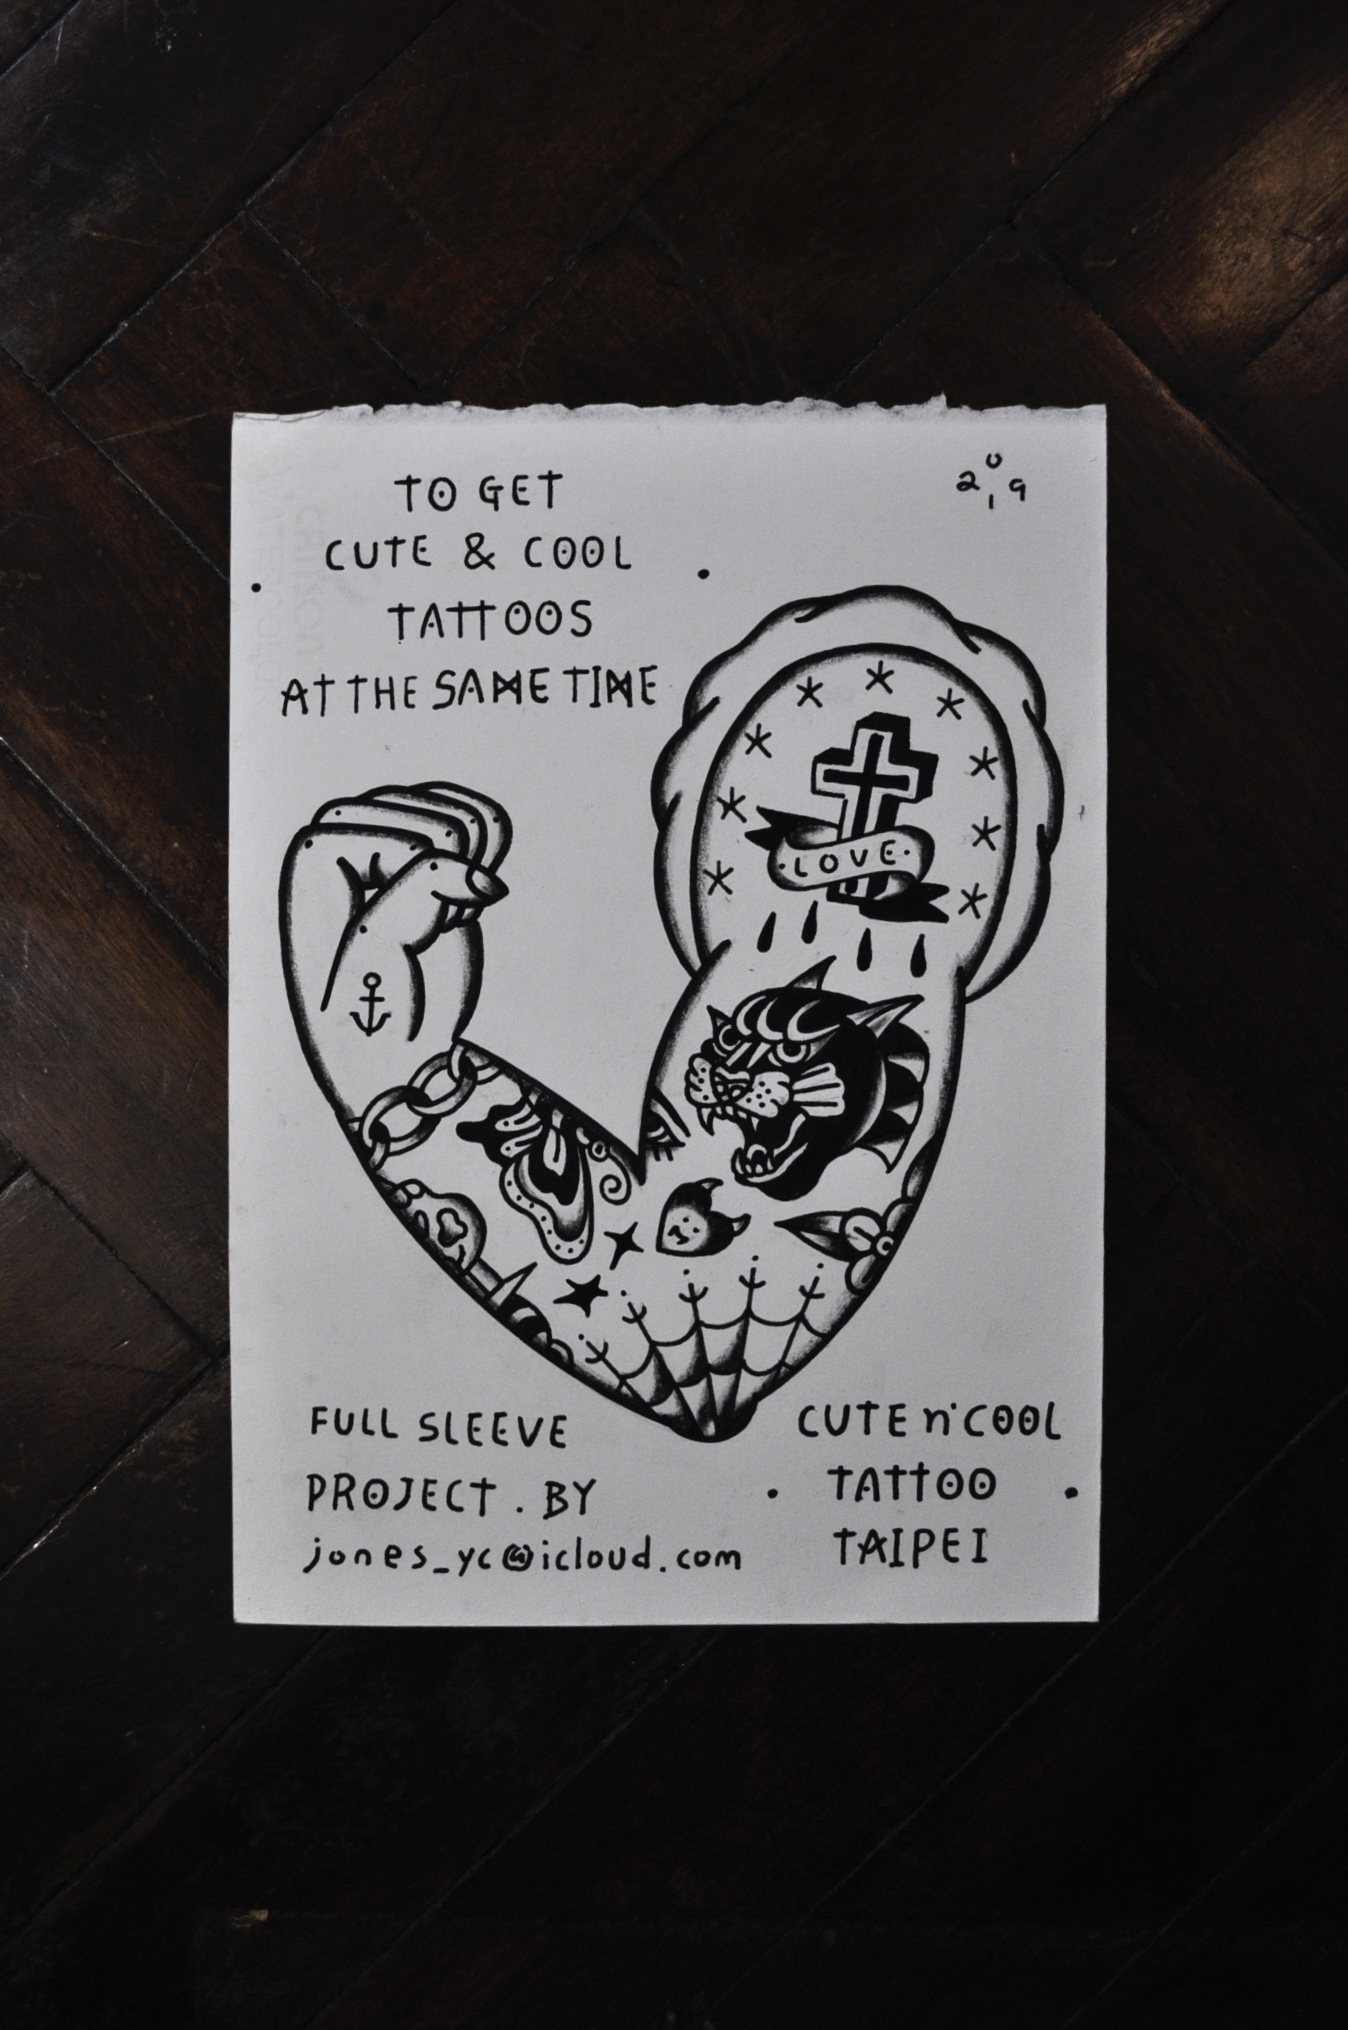 TO GET
CUTE & COOL
TATTOOS
AT THE SAME TIME
2019
LOVE
FULL SLEEVE
PROJECT . BY
jones_yc@icloud.com
CUTE n' COOL
TATTOO
TAIPEI